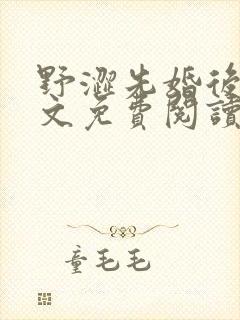 野澀先婚後
文免費閱讀
童毛毛